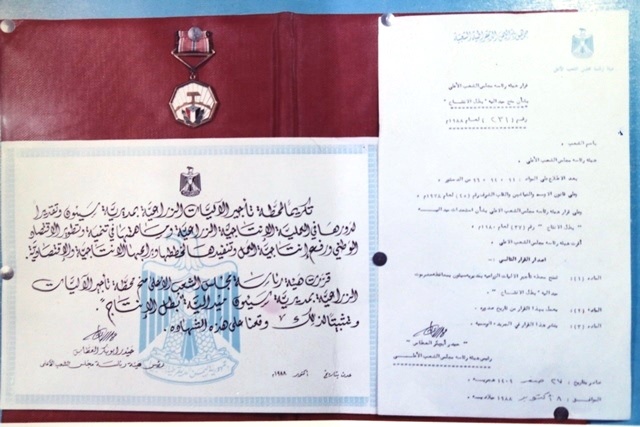 تكريماً لمحطة تأجير الآليات الزراعية بمديرية سيئون وتقديراً
لدورها في العملية الإنتاجية الزراعية ومساهمتها في تنمية وتطوير الاقتصاد
الوطني ورفع إنتاجية العمل وتنفيذها لخططها وبرامجها الإنتاجية والاقتصادية.
قررت هيئة رئاسة مجلس الشعب الأعلى منح محطة تأجير الآليات
الزراعية بمديرية سيئون ميدالية "بطل الإنتاج".
وتثبيتاً لذلك وقعنا على هذه الشهادة.
حيدر أبوبكر العطاس
رئيس هيئة رئاسة مجلس الشعب الأعلى
عدن بتاريخ أكتوبر ١٩٨٨م
هيئة رئاسة مجلس الشعب الأعلى
قرار هيئة رئاسة مجلس الشعب الأعلى
بشأن منح ميدالية "بطل الانتاج"
رقم (٢٣١) لعام ١٩٨٨م
باسم الشعب
هيئة رئاسة مجلس الشعب الأعلى
بعد الاطلاع على المواد من الدستور
وعلى قرار هيئة رئاسة مجلس الشعب الأعلى بشأن
"بطل الانتاج" رقم (٣٧) لعام ١٩٨٨م
أقرت هيئة رئاسة مجلس الشعب الأعلى
اصدار القرار التالي
المادة (١) : تمنح محطة تأجير الآليات الزراعية بمديرية سيئون بمحافظة حضرموت
ميدالية "بطل الانتاج"
المادة (٢) : يعمل بهذا القرار من تاريخ صدوره
المادة (٣) : ينشر هذا القرار في الجريدة الرسمية
حيدر أبوبكر العطاس
رئيس هيئة رئاسة مجلس الشعب الأعلى
صادر بتاريخ : ٢٧ صفر ١٤٠٩ هجرية
الموافق : ٨ أكتوبر ١٩٨٨ ميلادية